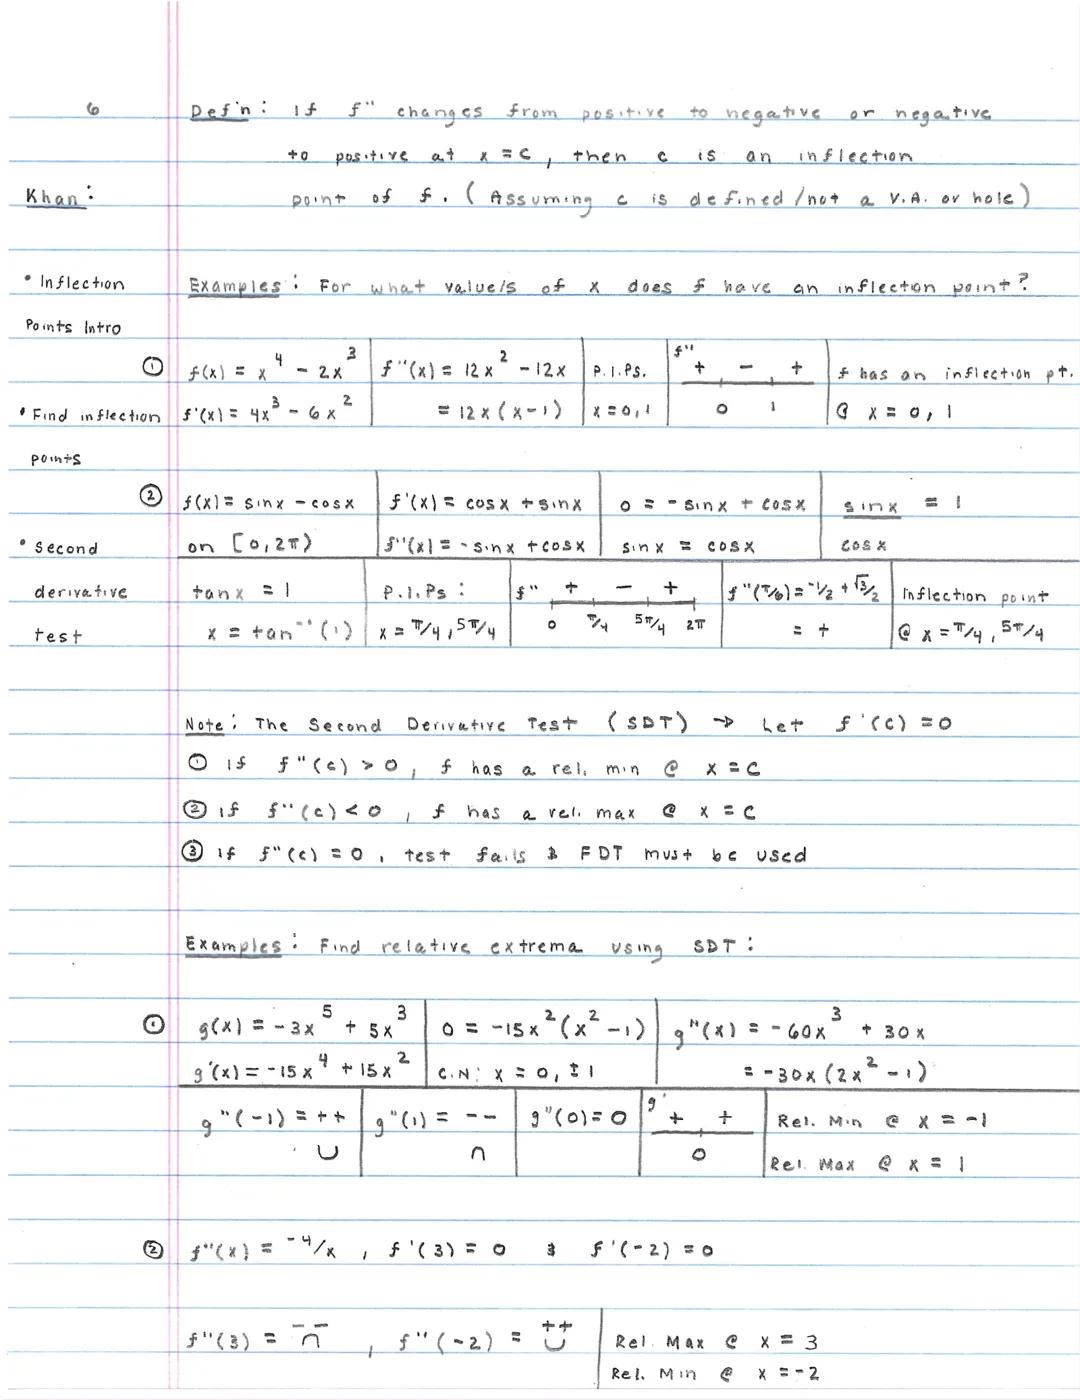 6
Def'n: If f" changes from positive to negative or negative
to positive at x = c, then c is an inflection
Khan:
point of f. (Assuming c is defined/not a V.A. or hole)
• Inflection
Points Intro
Examples: For what value/s of x does f have an inflection point?
① f(x) = x⁴ - 2x³ | f"(x) = 12x² - 12x | P.I.Ps. | f" + - + | f has an inflection pt.
• Find inflection
points
f'(x) = 4x³ - 6x² | = 12x(x-1) | x = 0, 1 | 0 1 | @ x = 0, 1
② f(x) = sinx - cosx | f'(x) = cosx + sinx | 0 = -sinx + cosx | sinx = 1
• Second
derivative
test
on [0, 2π) | f"(x) = -sinx + cosx | sinx = cosx | cosx
tanx = 1 | P.I.Ps: | f" + - + | f"(π/6) = -1/2 + √3/2 | Inflection point
x = tan⁻¹(1) | x = π/4, 5π/4 | 0 π/4 5π/4 2π | = + | @ x = π/4, 5π/4
Note: The Second Derivative Test (SDT) → Let f'(c) = 0
① if f"(c) > 0, f has a rel. min @ x = c
② if f"(c) < 0, f has a rel. max @ x = c
③ if f"(c) = 0, test fails & FDT must be used
Examples: Find relative extrema using SDT:
① g(x) = -3x⁵ + 5x³ | 0 = -15x²(x² - 1) | g"(x) = -60x³ + 30x
g'(x) = -15x⁴ + 15x² | C.N: x = 0, ±1 | = -30x(2x² - 1)
g"(-1) = ++ | g"(1) = -- | g"(0) = 0 | g' + + | Rel. Min @ x = -1
∪ | ∩ | 0 | Rel. Max @ x = 1
② f"(x) = -4/x, f'(3) = 0 & f'(-2) = 0
-- ++
f"(3) = ∩, f"(-2) = ∪ | Rel. Max @ x = 3
Rel. Min @ x = -2